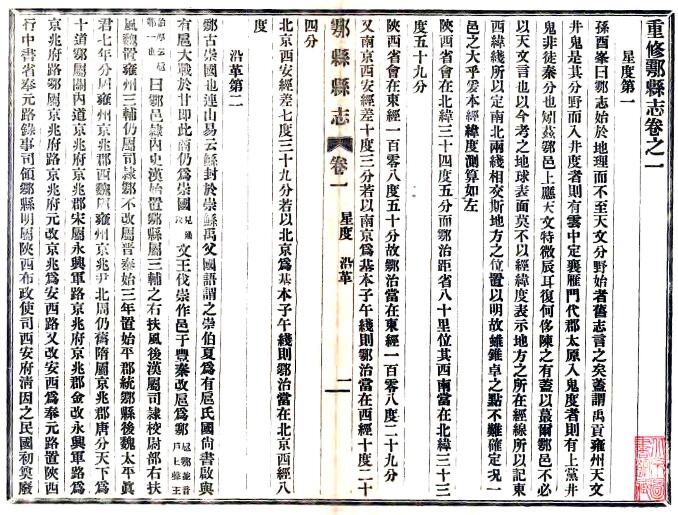 重修鄠縣志卷之一
星度第一
孫酉峯曰鄠志始於地理而不至天文分野始者舊志言之矣蓋謂禹貢雍州天文
井鬼是其分野而入井度者則有雲中定襄雁門代郡太原入鬼度者則有上黨井
鬼非徒秦分也矧蕞鄠邑上應天文特微辰耳復何侈陳之有蓋以蕞爾鄠邑不必
以天文言也以今考之地球表面莫不以經緯度表示地方之所在經線所以記東
西緯綫所以定南北兩綫相交斯地方之位置以明故雖錐卓之點不難確定况一
邑之大乎爰本經緯度測算如左
陝西省會在北緯三十四度五分而鄠治距省八十里位其西南當在北緯三十三
度五十九分
陝西省會在東經一百零八度五十分故鄠治當在東經一百零八度二十九分
又南京西安經差十度三分若以南京爲基本子午綫則鄠治當在西經十度二十
四分
鄠縣縣志 卷一 星度 沿革 一
北京西安經差七度三十九分若以北京爲基本子午綫則鄠治當在北京西經八
度
沿革第二
鄠古崇國也連山易云鯀封於崇鯀禹父國語謂之崇伯夏爲有扈氏國尚書啟與
有扈大戰於甘即此商仍爲崇國文王伐崇作邑于豐秦改扈爲鄠
曰鄠邑隸内史漢始置鄠縣屬三輔之右扶風後漢屬司隸校尉部右扶
風魏置雍州三輔仍屬司隸鄠不改屬晋泰始三年置始平郡統鄠縣後魏太平眞
君七年分屬雍州京兆郡西魏屬雍州京兆尹北周仍舊隋屬京兆郡唐分天下爲
十道鄠屬關内道京兆府京兆郡宋屬永興軍路京兆府京兆郡金改永興軍路爲
京兆府路鄠屬京兆府路京兆府元改京兆爲安西路又改安西爲奉元路置陝西
行中書省奉元路錄事司領鄠縣明屬陝西布政使司西安府清因之民國初奠廢